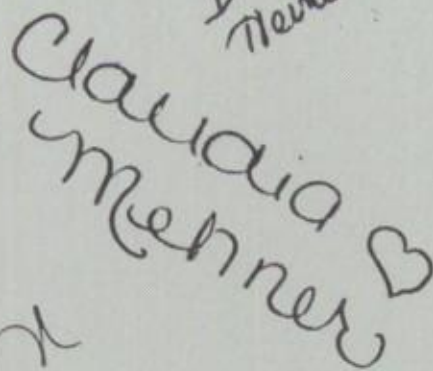 Claudia
Mehner ♡